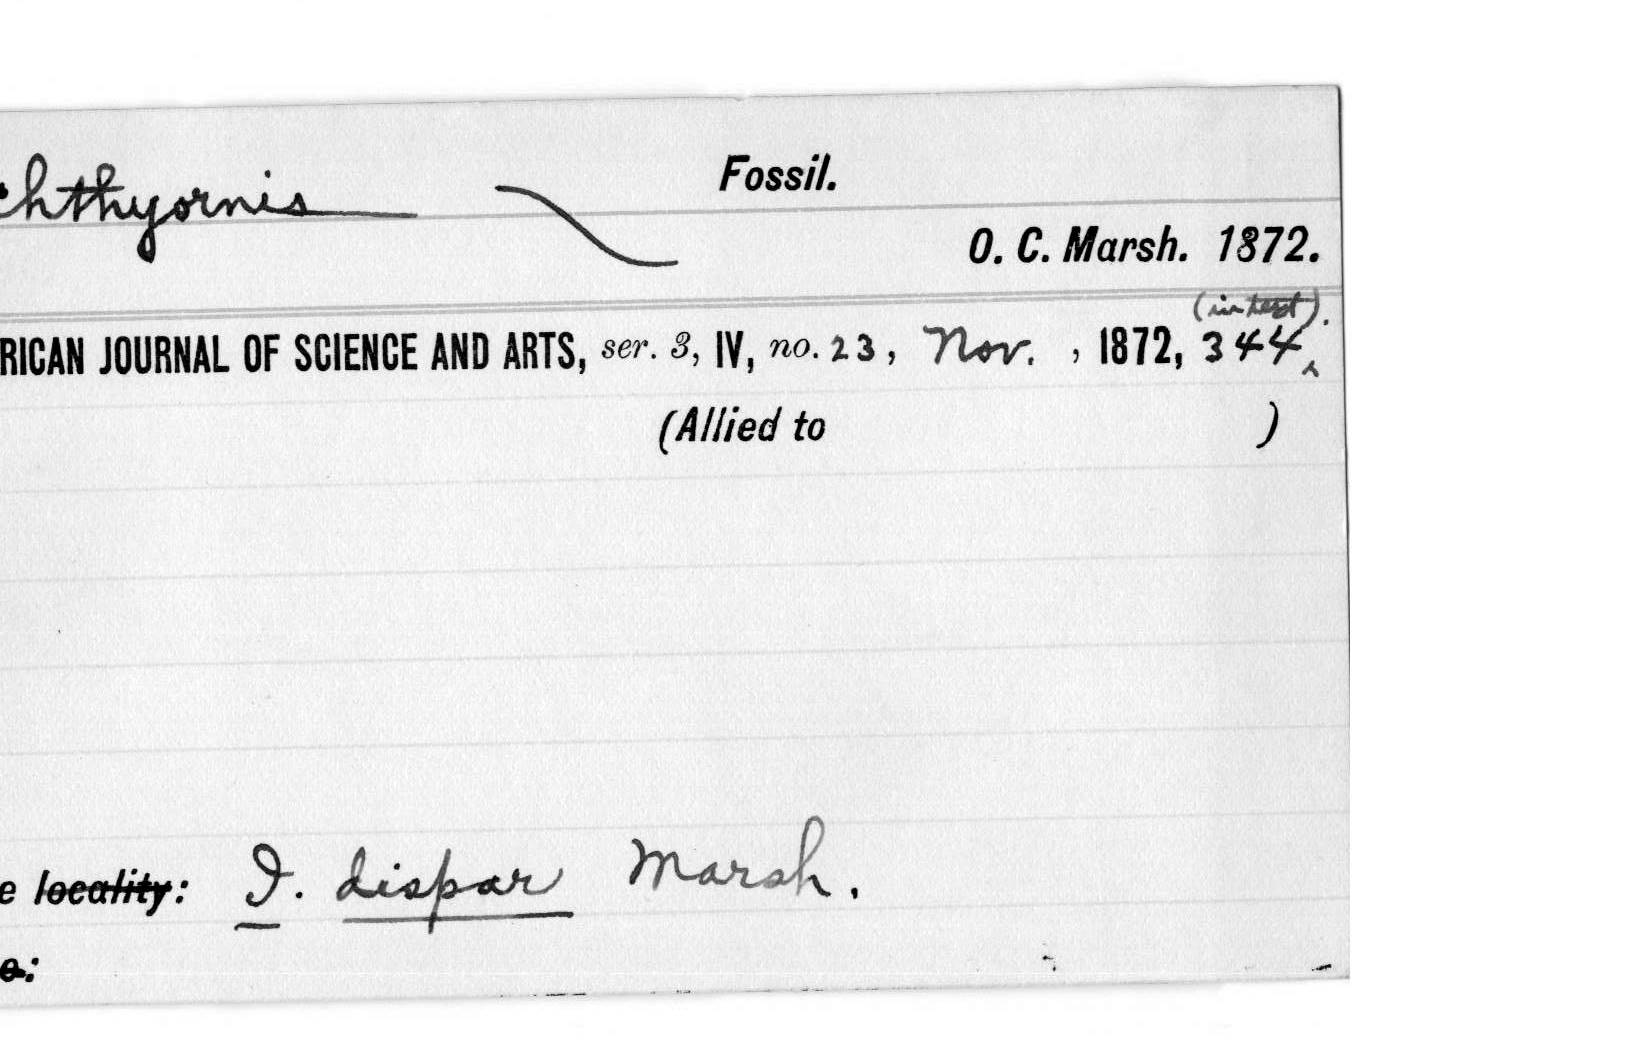 chthyornis Fossil.
O. C. Marsh. 1872.
(in text).
RICAN JOURNAL OF SCIENCE AND ARTS, ser. 3, IV, no. 23, Nov. , 1872, 344
(Allied to )
e locality: I. dispar Marsh.
e: